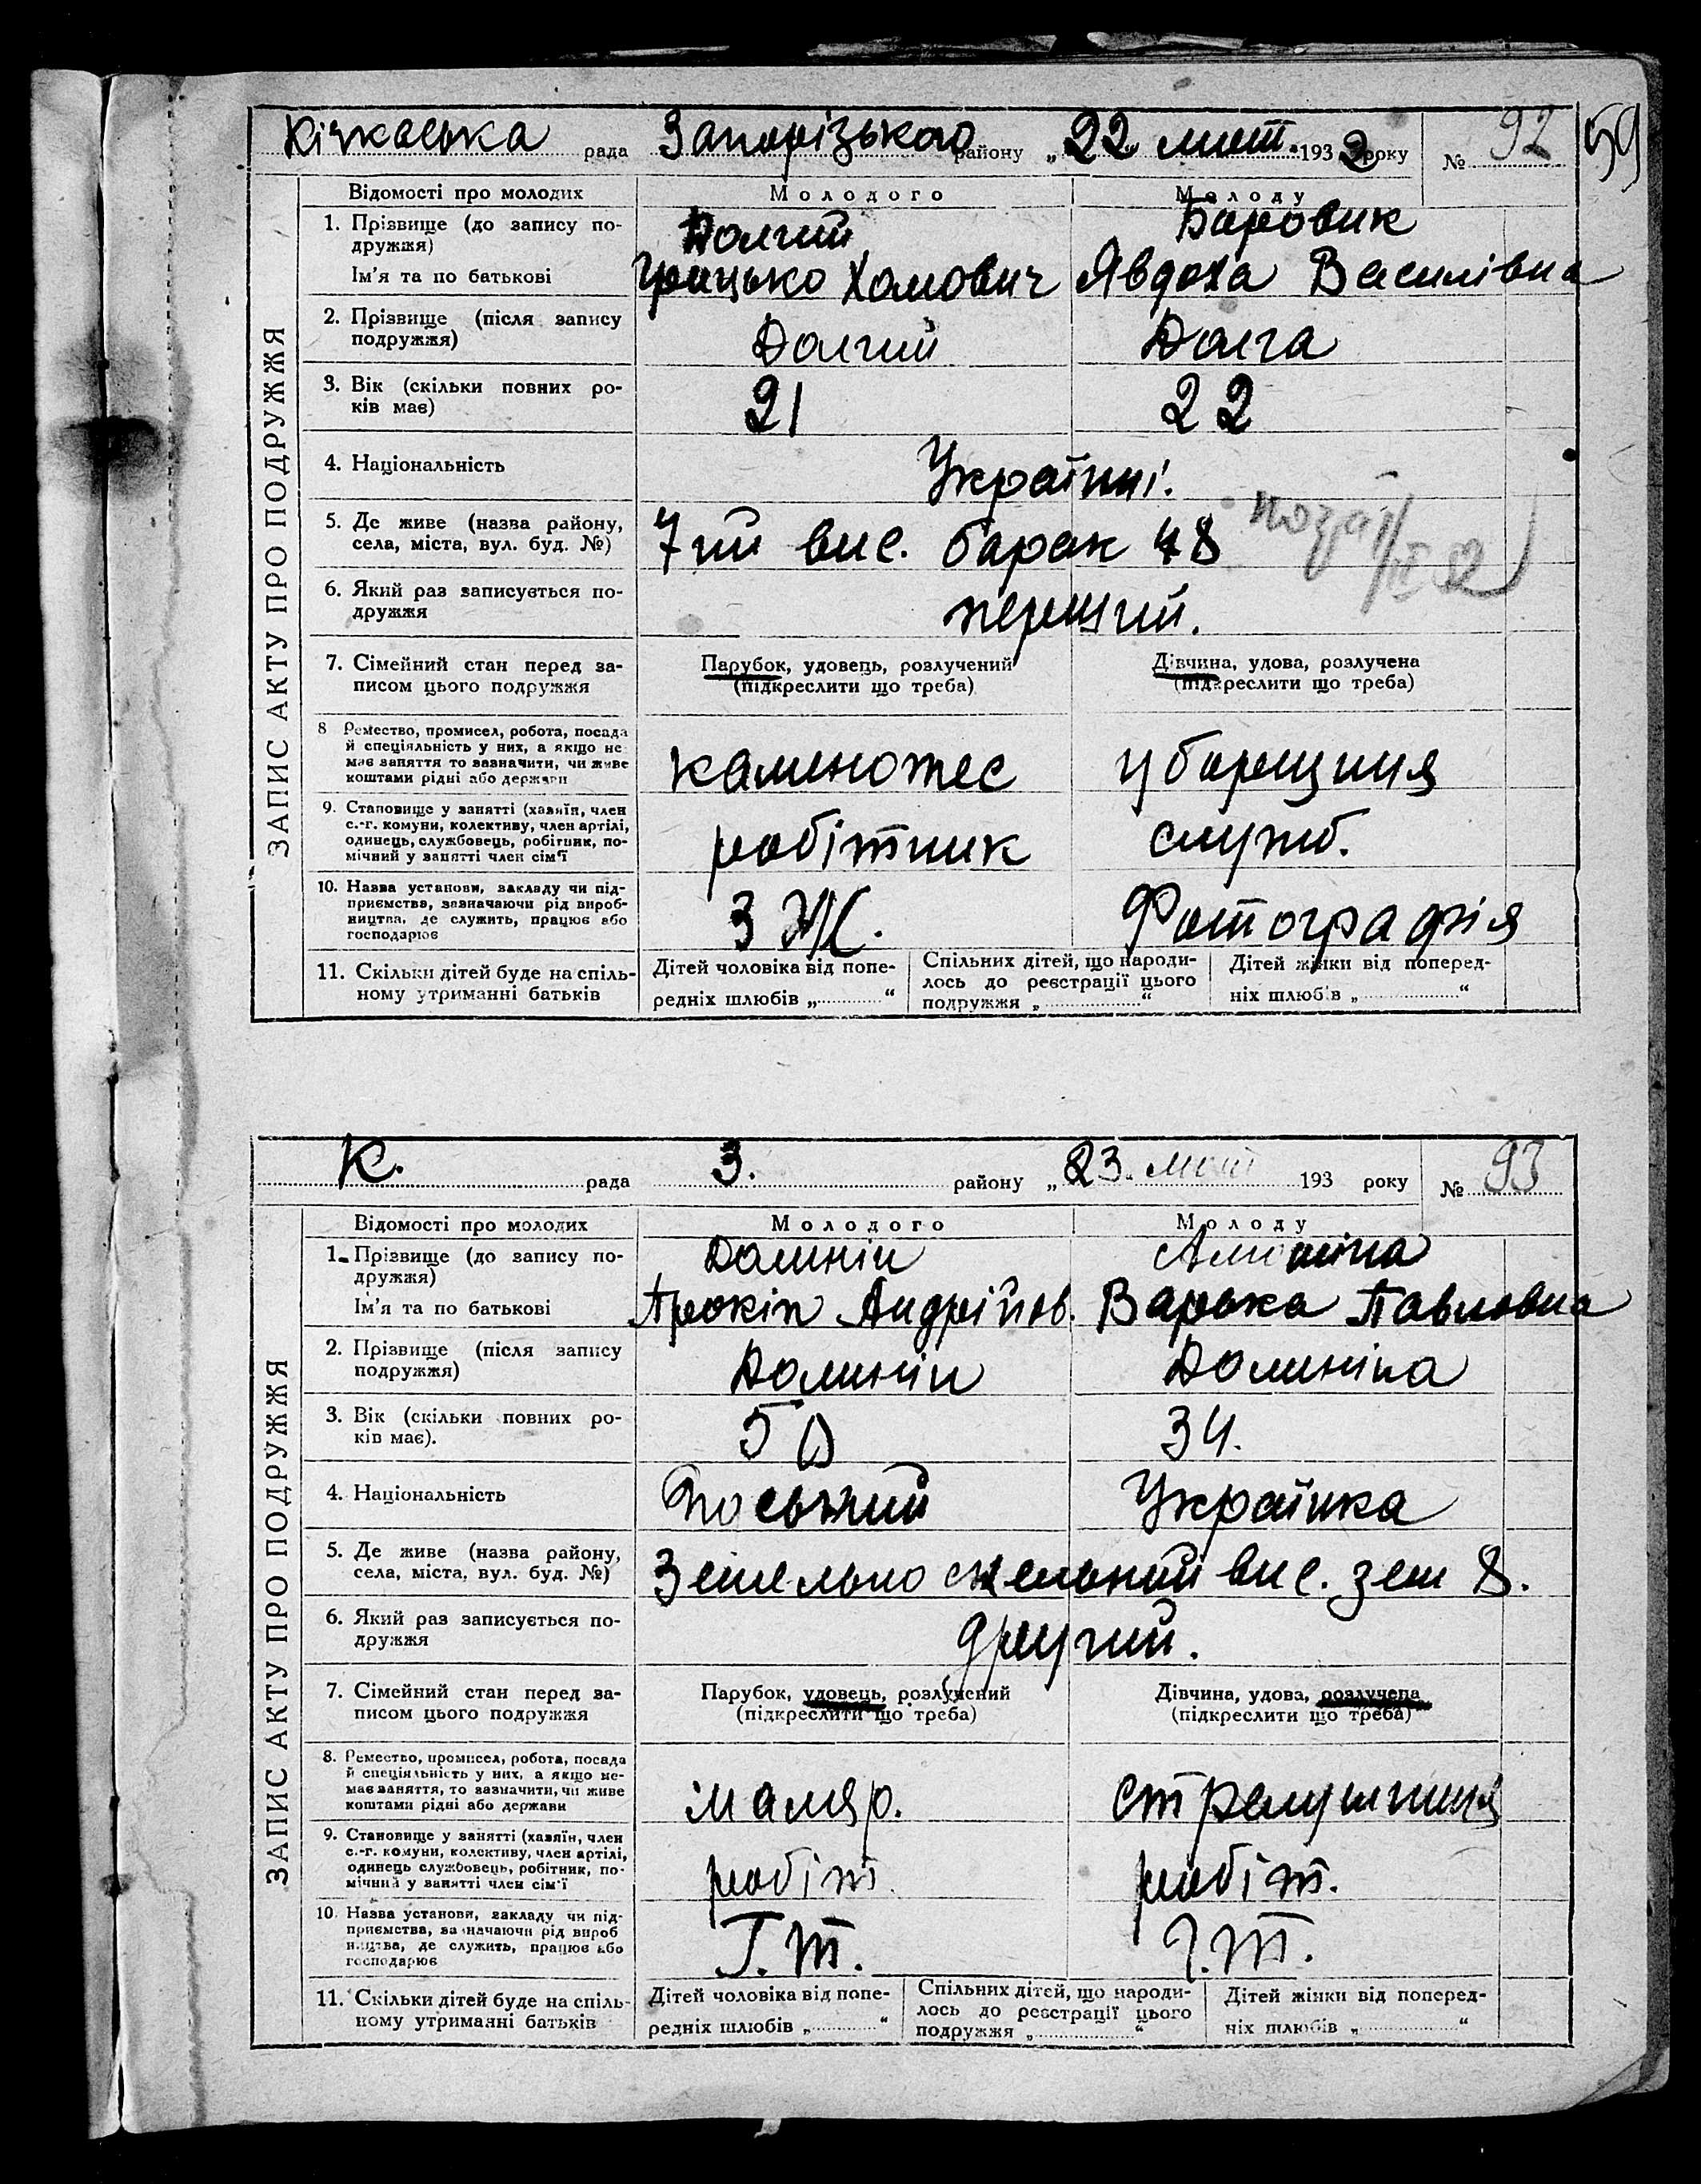 59
Кічкаська рада Запорізького району „22 лют. 1932 року № 92
ЗАПИС АКТУ ПРО ПОДРУЖЖЯ
Відомості про молодих Молодого Молоду
1. Прізвище (до запису подружжя) Долгий Боровик
Ім'я та по батькові Грицько Хомович Явдоха Василівна
2. Прізвище (після запису подружжя) Долгий Долга
3. Вік (скільки повних років має) 21 22
4. Національність Українці.
5. Де живе (назва району, села, міста, вул. буд. №) 7ий вис. барак 48
6. Який раз записується подружжя перший.
7. Сімейний стан перед записом цього подружжя Парубок, удовець, розлучений (підкреслити що треба) Дівчина, удова, розлучена (підкреслити що треба)
8 Ремество, промисел, робота, посада й спеціяльність у них, а якщо не має заняття то зазначити, чи живе коштами рідні або держави каменотес уборщиця
9. Становище у занятті (хазяїн, член с.-г. комуни, колективу, член артілі, одинець, службовець, робітник, помічний у занятті член сім'ї робітник служб.
10. Назва установи, закладу чи підприємства, зазначаючи рід виробництва, де служить, працює або господарює З Ж. Фотографія
11. Скільки дітей буде на спільному утриманні батьків Дітей чоловіка від попередніх шлюбів „ “ Спільних дітей, що народилось до реєстрації цього подружжя „ “ Дітей жінки від попередніх шлюбів „ “
К. рада З. району „23. лют 193 року № 93
ЗАПИС АКТУ ПРО ПОДРУЖЖЯ
Відомості про молодих Молодого Молоду
1. Прізвище (до запису подружжя) Долинін
Ім'я та по батькові Прокіп Андрійов. Варька Павловна
2. Прізвище (після запису подружжя) Долинін Долиніна
3. Вік (скільки повних років має). 50 34.
4. Національність Українка
5. Де живе (назва району, села, міста, вул. буд. №) вис. зем 8.
6. Який раз записується подружжя другий.
7. Сімейний стан перед записом цього подружжя Парубок, удовець, розлучений (підкреслити що треба) Дівчина, удова, розлучена (підкреслити що треба)
8. Ремество, промисел, робота, посада й спеціяльність у них, а якщо немає заняття, то зазначити, чи живе коштами рідні або держави маляр.
9. Становище у занятті (хазяїн, член с.-г. комуни, колективу, член артілі, одинець службовець, робітник, помічний у занятті член сім'ї робіт. робіт.
10. Назва установи, закладу чи підприємства, зазначаючи рід виробництва, де служить, працює або господарює Г.Т. Г.Т.
11. Скільки дітей буде на спільному утриманні батьків Дітей чоловіка від попередніх шлюбів „ “ Спільних дітей, що народилось до реєстрації цього подружжя „ “ Дітей жінки від попередніх шлюбів „ “